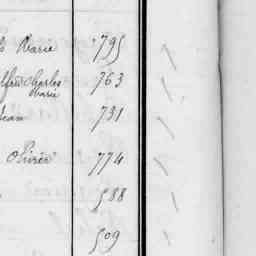 Marie 795
Alfred Charles 763
Marie
Jean 731
Olivier 774
588
509